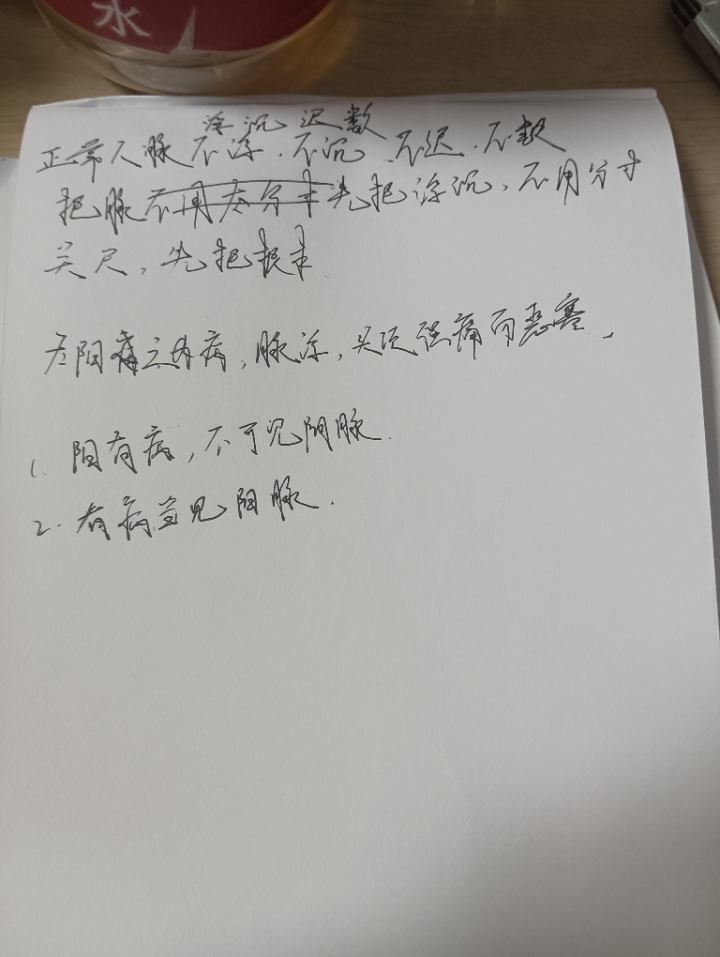 水
浮沉迟数
正常人脉不浮.不沉.不迟.不数
把脉不用太分半先把浮沉、不用分寸
关尺,先把根本
太阳病之为病,脉浮,头项强痛而恶寒,
1. 阳有病,不可见阴脉.
2. 有病当见阳脉.